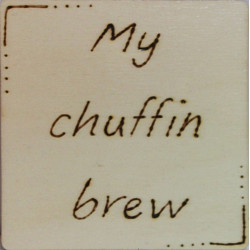 My
chuffin
brew